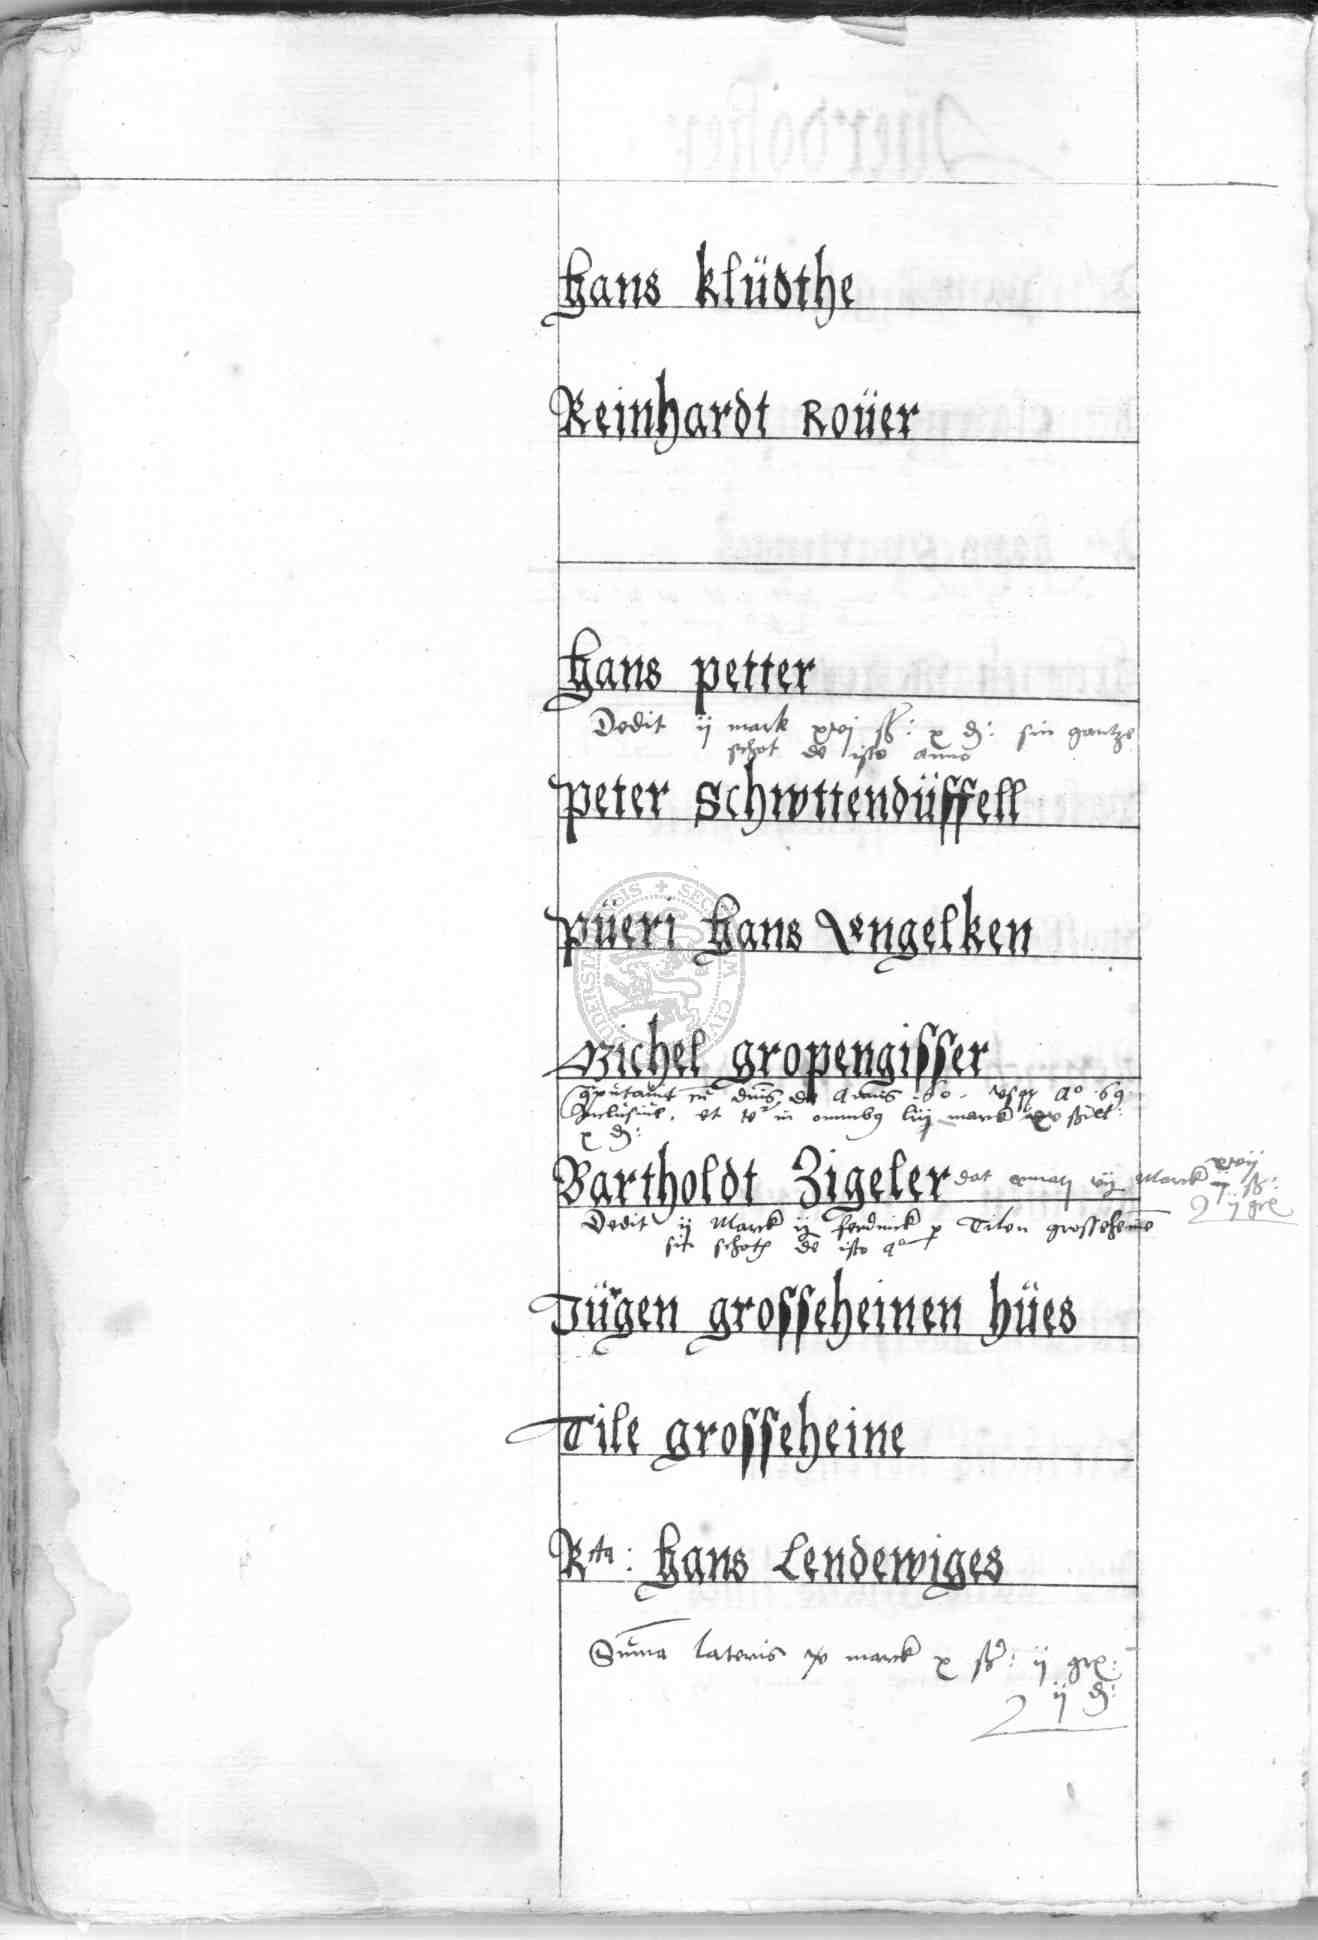 Hans Klüdthe
Reinhardt Roüer
Hans Petter
Dedit ij mark xvj ß: x d: sin gantze
schot de isto anno
Peter Schwttendüffell
Püeri Hans Engelken
Michel Gropengisser
Inclusive, et in omnibus marck
x d:
Bartholdt Zigeler dat Marck xvij
ij gr
Dedit ij Marck ij ferdinck p Tilen grosseheine
sin schoth de isto ao
Jürgen grosseheinen hües
Tile grosseheine
Rta: Hans Lendewiges
Summa lateris marck x ß: ij gr:
ij d: